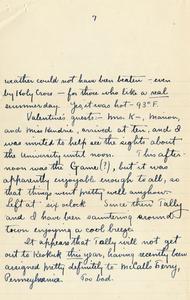 7
weather could not have been beaten - even
by Holy Cross - for those who like a real
summer day. Yes, it was hot - 93°F.
Valentine's guests:- Mrs. K-, Marion,
and Miss Kendrie, arrived at ten, and I
was invited to help see the sights about
the University until noon. This after-
noon was the Game(?), but it was
apparently enjoyable enough to all, so
that things went pretty well anyhow-
Left at six o'clock Since then Tally
and I have been sauntering around
town enjoying a cool breeze.
It appears that Tally will not get
out to Keokuk this year, having recently been
assigned pretty definitely to McCalls Ferry,
Pennsylvania. Too bad.